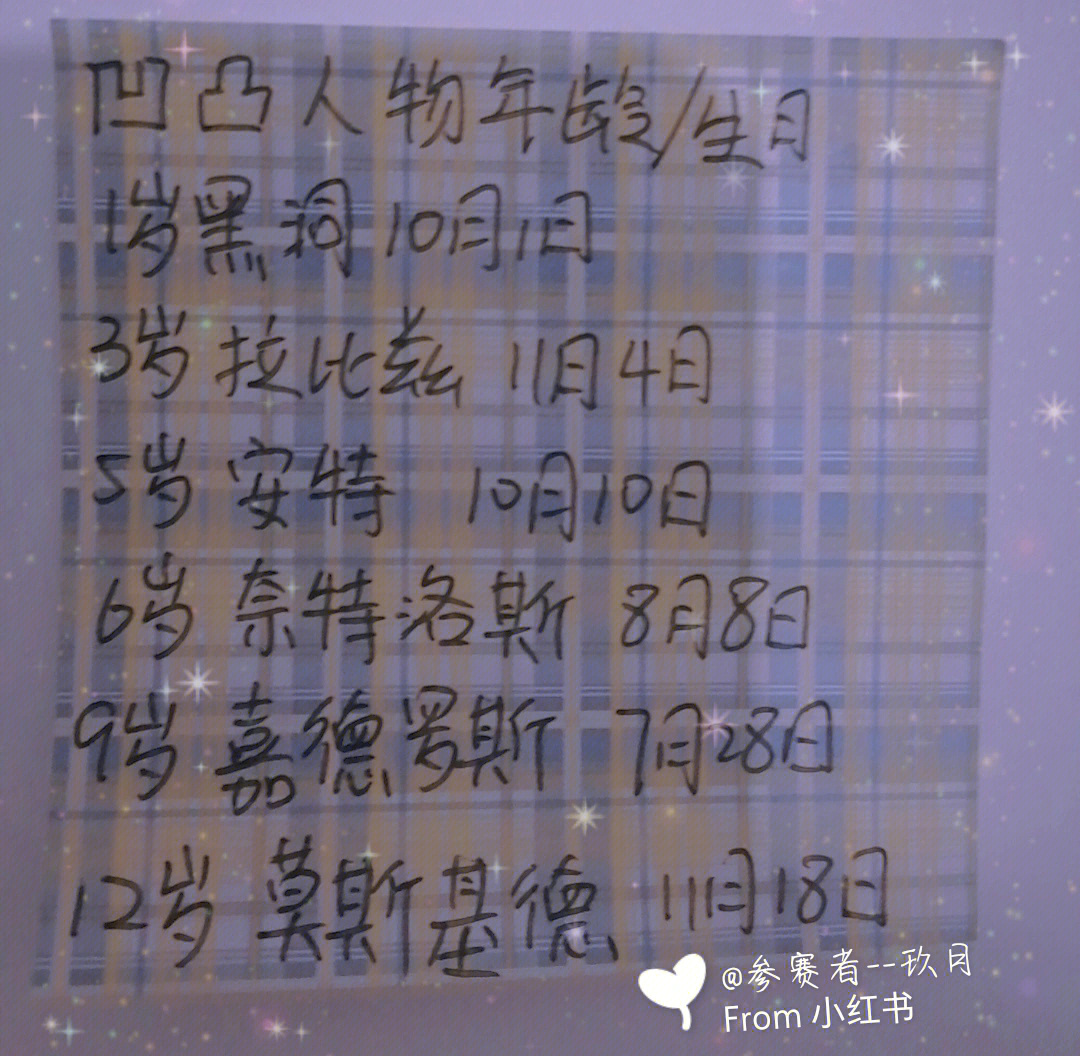 凹凸人物年龄/生日
1岁黑洞 10月1日
3岁 拉比兹 11月4日
5岁 安特 10月10日
6岁 奈特洛斯 8月8日
9岁 嘉德罗斯 7月28日
12岁 莫斯基德 11月18日
@参赛者--玖月
From 小红书